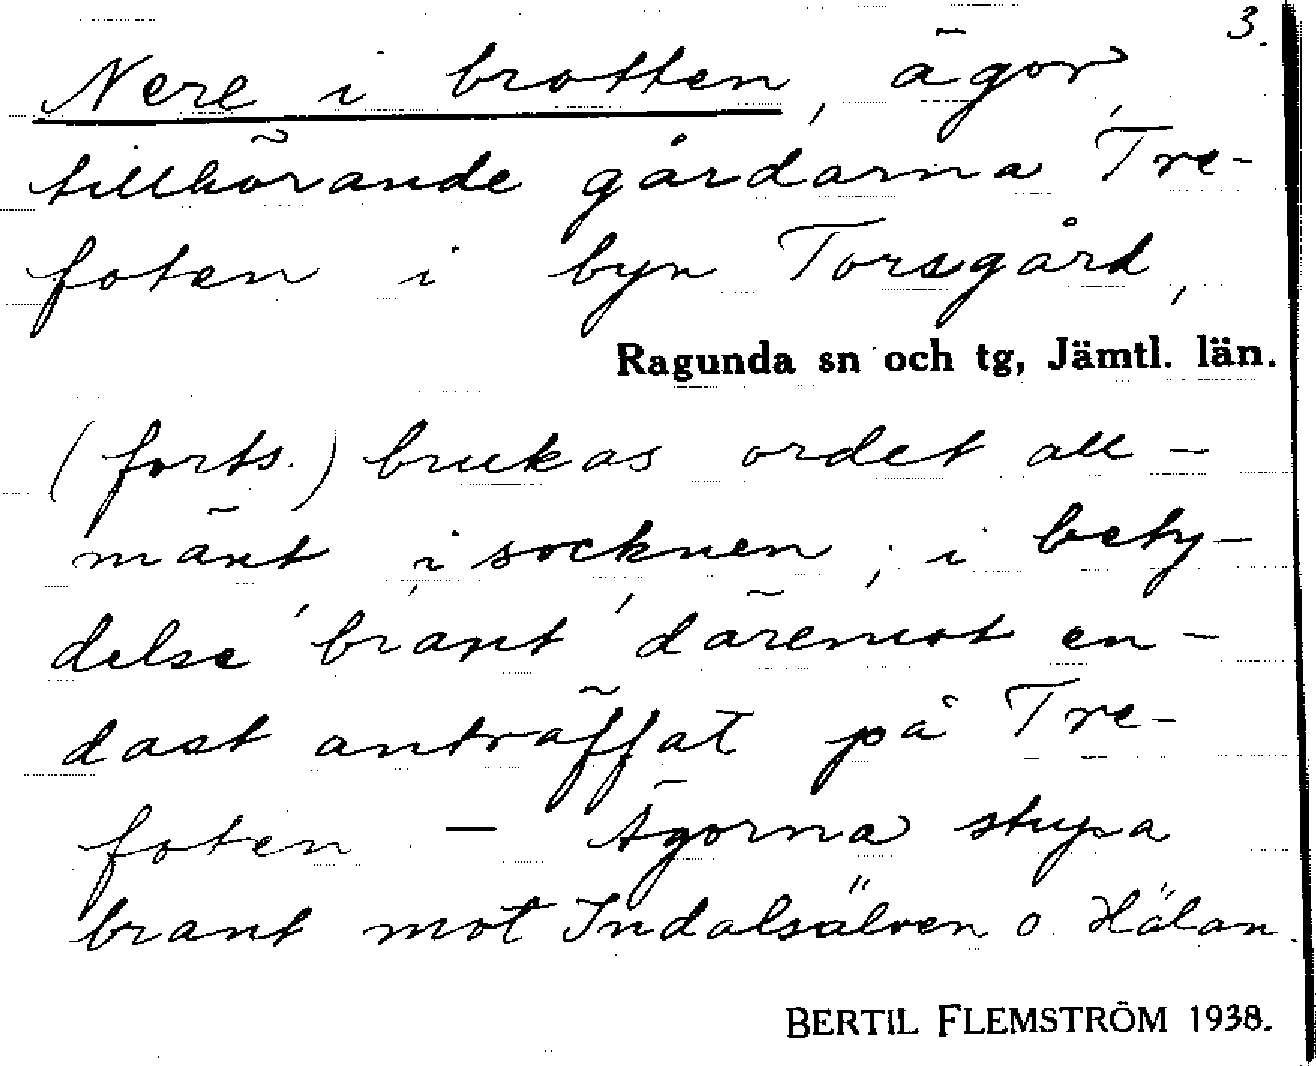 3.
Nere i brotten, ägor,
tillhörande gårdarna Tre-
foten i byn Torsgård,
Ragunda sn och tg, Jämtl. län.
(forts.) brukas ordet all-
mänt i socknen; i bety-
delse 'brant' däremot en-
dast anträffat på Tre-
foten — Ägorna stupa
brant mot Indalsälven o Hälan.
BERTIL FLEMSTRÖM 1938.